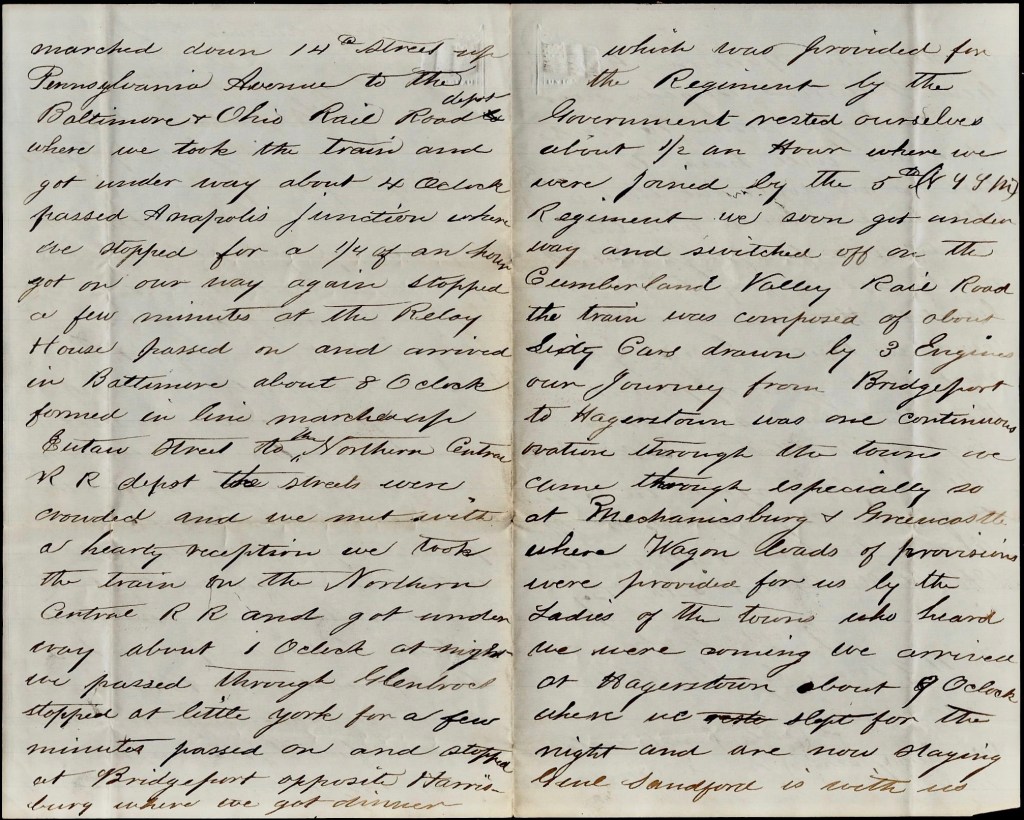 marched down 14th Street up
Pennsylvania Avenue to the
Baltimore & Ohio Rail Road depot
where we took the train and
got under way about 4 Oclock
passed Anapolis Junction where
we stopped for a 1/4 of an hour
got on our way again stopped
a few minutes at the Relay
House passed on and arrived
in Battimore about 8 O clock
formed in line marched up
Eutaw Street to the Northern Central
R R depot the streets were
crowded and we met with
a hearty reception we took
the train on the Northern
Central R R and got under
way about 1 Oclock at night
we passed through Glenbrock
stopped at little york for a few
minutes passed on and stopped
at Bridgeport opposite Harris-
burg where we got dinner
which was provided for
the Regiment by the
Government rested ourselves
about 1/2 an Hour where we
were joined by the 5th (N Y S M)
Regiment we soon got under
way and switched off on the
Cumberland Valley Rail Road
the train was composed of about
Sixty Cars drawn by 3 Engines
our Journey from Bridgeport
to Hagerstown was one continuous
ovation through the towns we
came through especially so
at Mechanicsburg & Greencastle
where Wagon loads of provisions
were provided for us by the
Ladies of the towns who heard
we were coming we arrived
at Hagerstown about 9 Oclock
where we slept for the
night and are now staying
Genl Sandford is with us